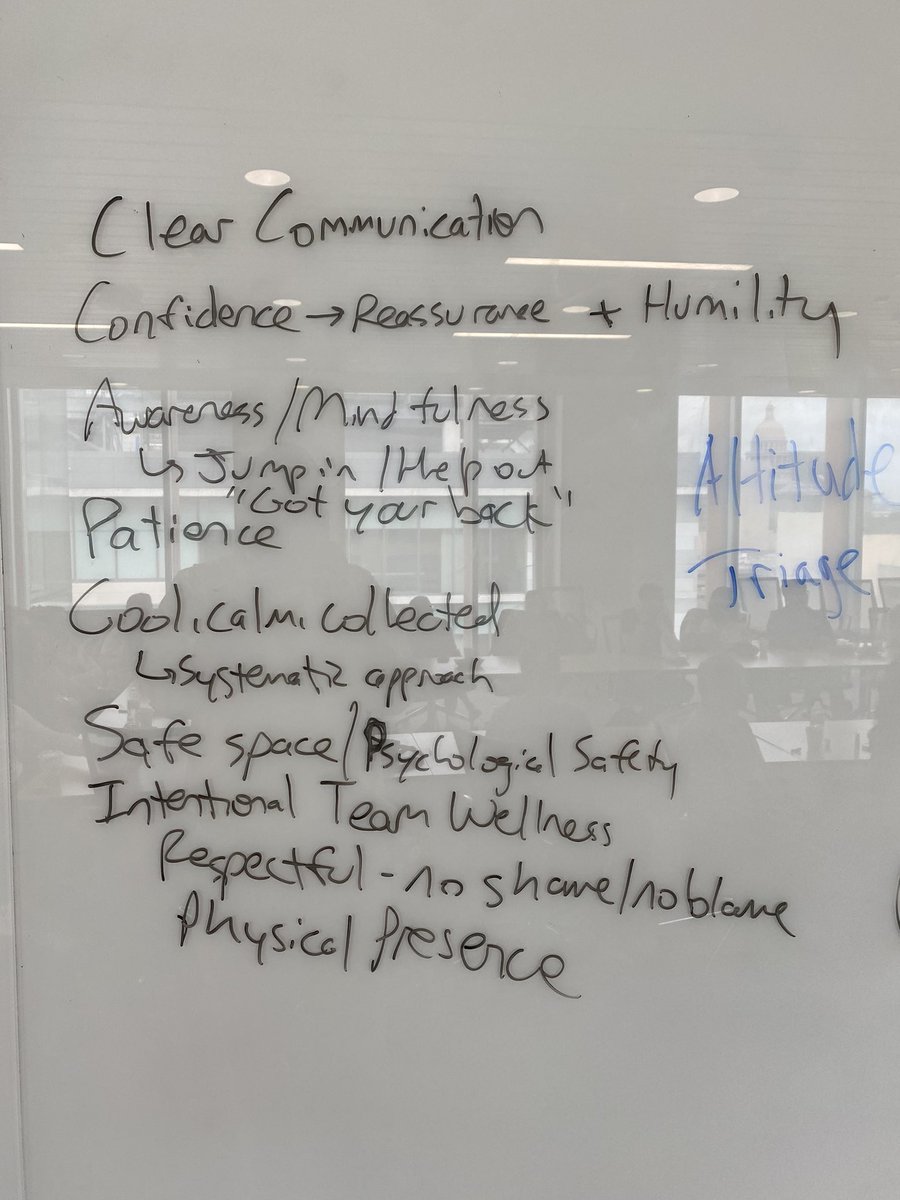 Clear Communication
Confidence → Reassurance + Humility
Awareness/Mindfulness
↳ Jump in/Help out
"Got your back"
Patience
Cool, calm, collected
↳ Systematic approach
Safe space/Psychological Safety
Intentional Team Wellness
Respectful - no shame/no blame
Physical Presence
Altitude
Triage